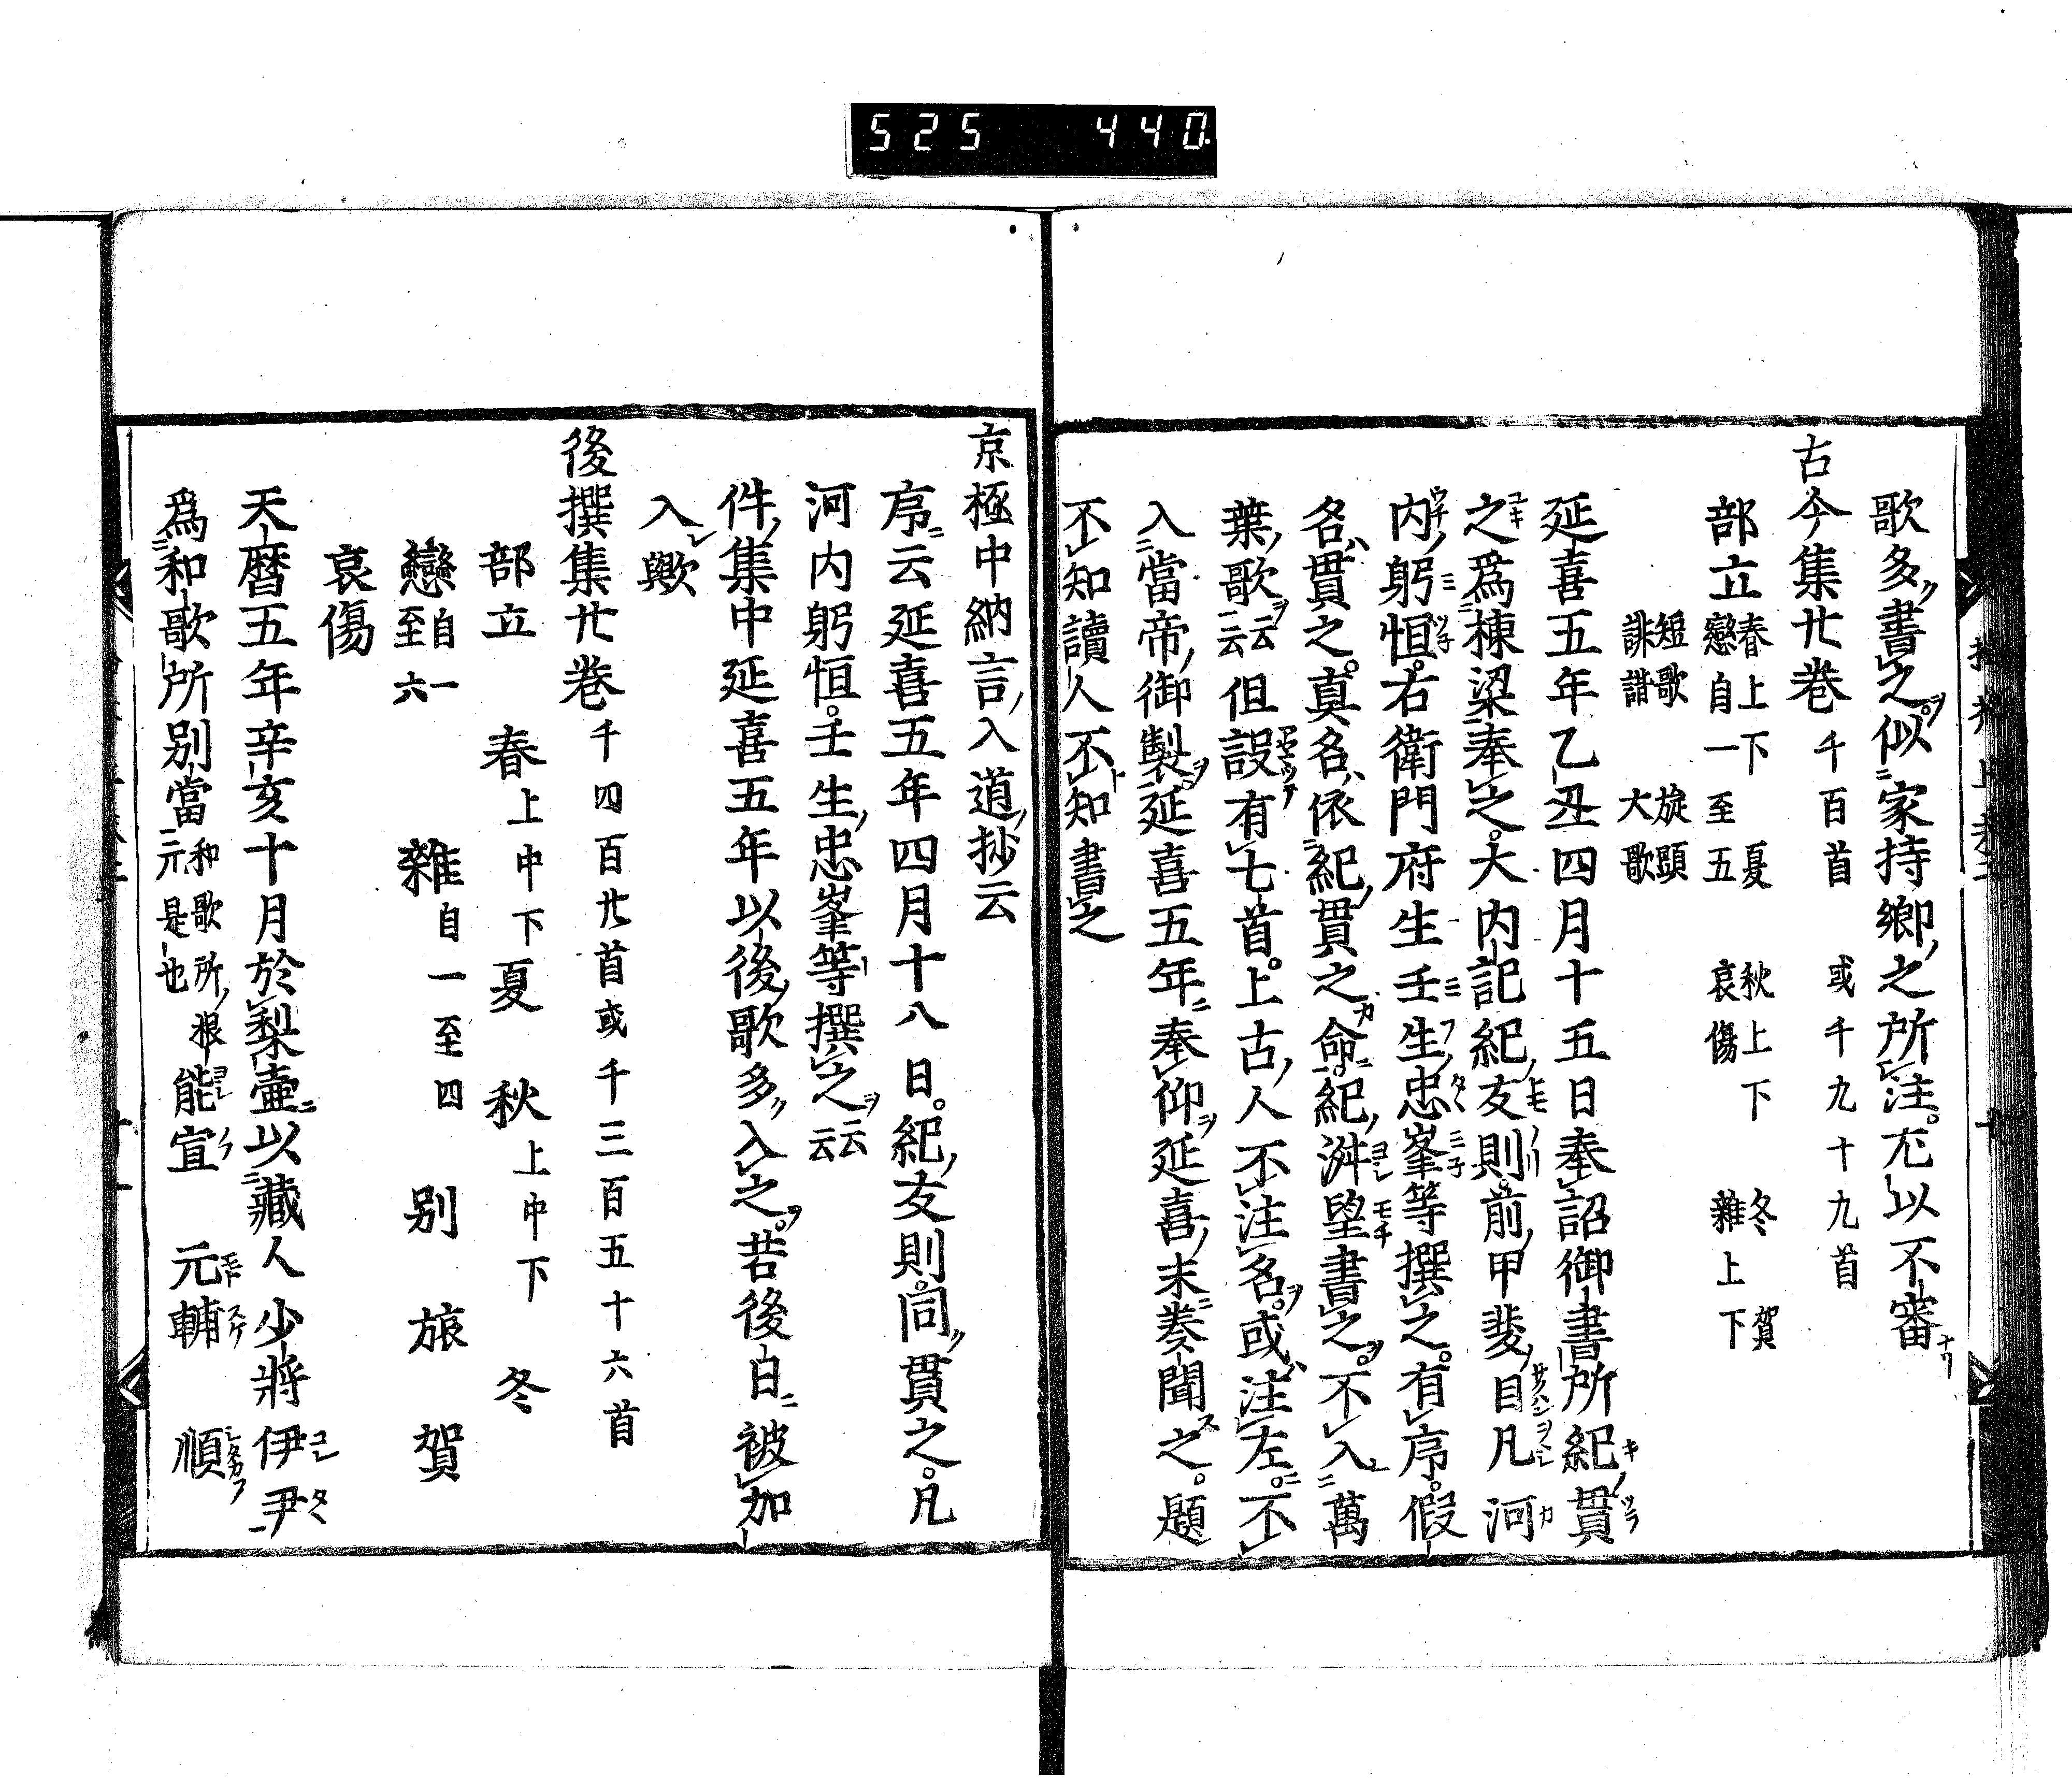 525 440
歌多書之似家持卿之所注尤以不審
古今集廿巻 千百首 或千九十九首
部立 春上下 夏 秋上下 冬 賀
戀自一至五 哀傷 雜上下
短歌 旋頭
誹諧 大歌
延喜五年乙丑四月十五日奉詔御書所紀貫
之爲棟梁奉之大内記紀友則前甲斐目凡河
内躬恒右衛門府生壬生忠峯等撰之有序假
名貫之真名依紀貫之命紀淑望書之不入萬
葉歌云云但誤有七首上古人不注名或注左不
入當帝御製延喜五年奉仰延喜末奏聞之題
不知讀人不知書之
京極中納言入道抄云
序云延喜五年四月十八日紀友則同貫之凡
河内躬恒壬生忠峯等撰之云云
件集中延喜五年以後歌多入之若後日被加
入歟
後撰集廿巻 千四百廿首或千三百五十六首
部立 春上中下 夏 秋上中下 冬
戀自一至六 雜自一至四 別 旅 賀
哀傷
天暦五年辛亥十月於梨壷以藏人少將伊尹
爲和歌所別當和歌所根元是也 能宣 元輔 順